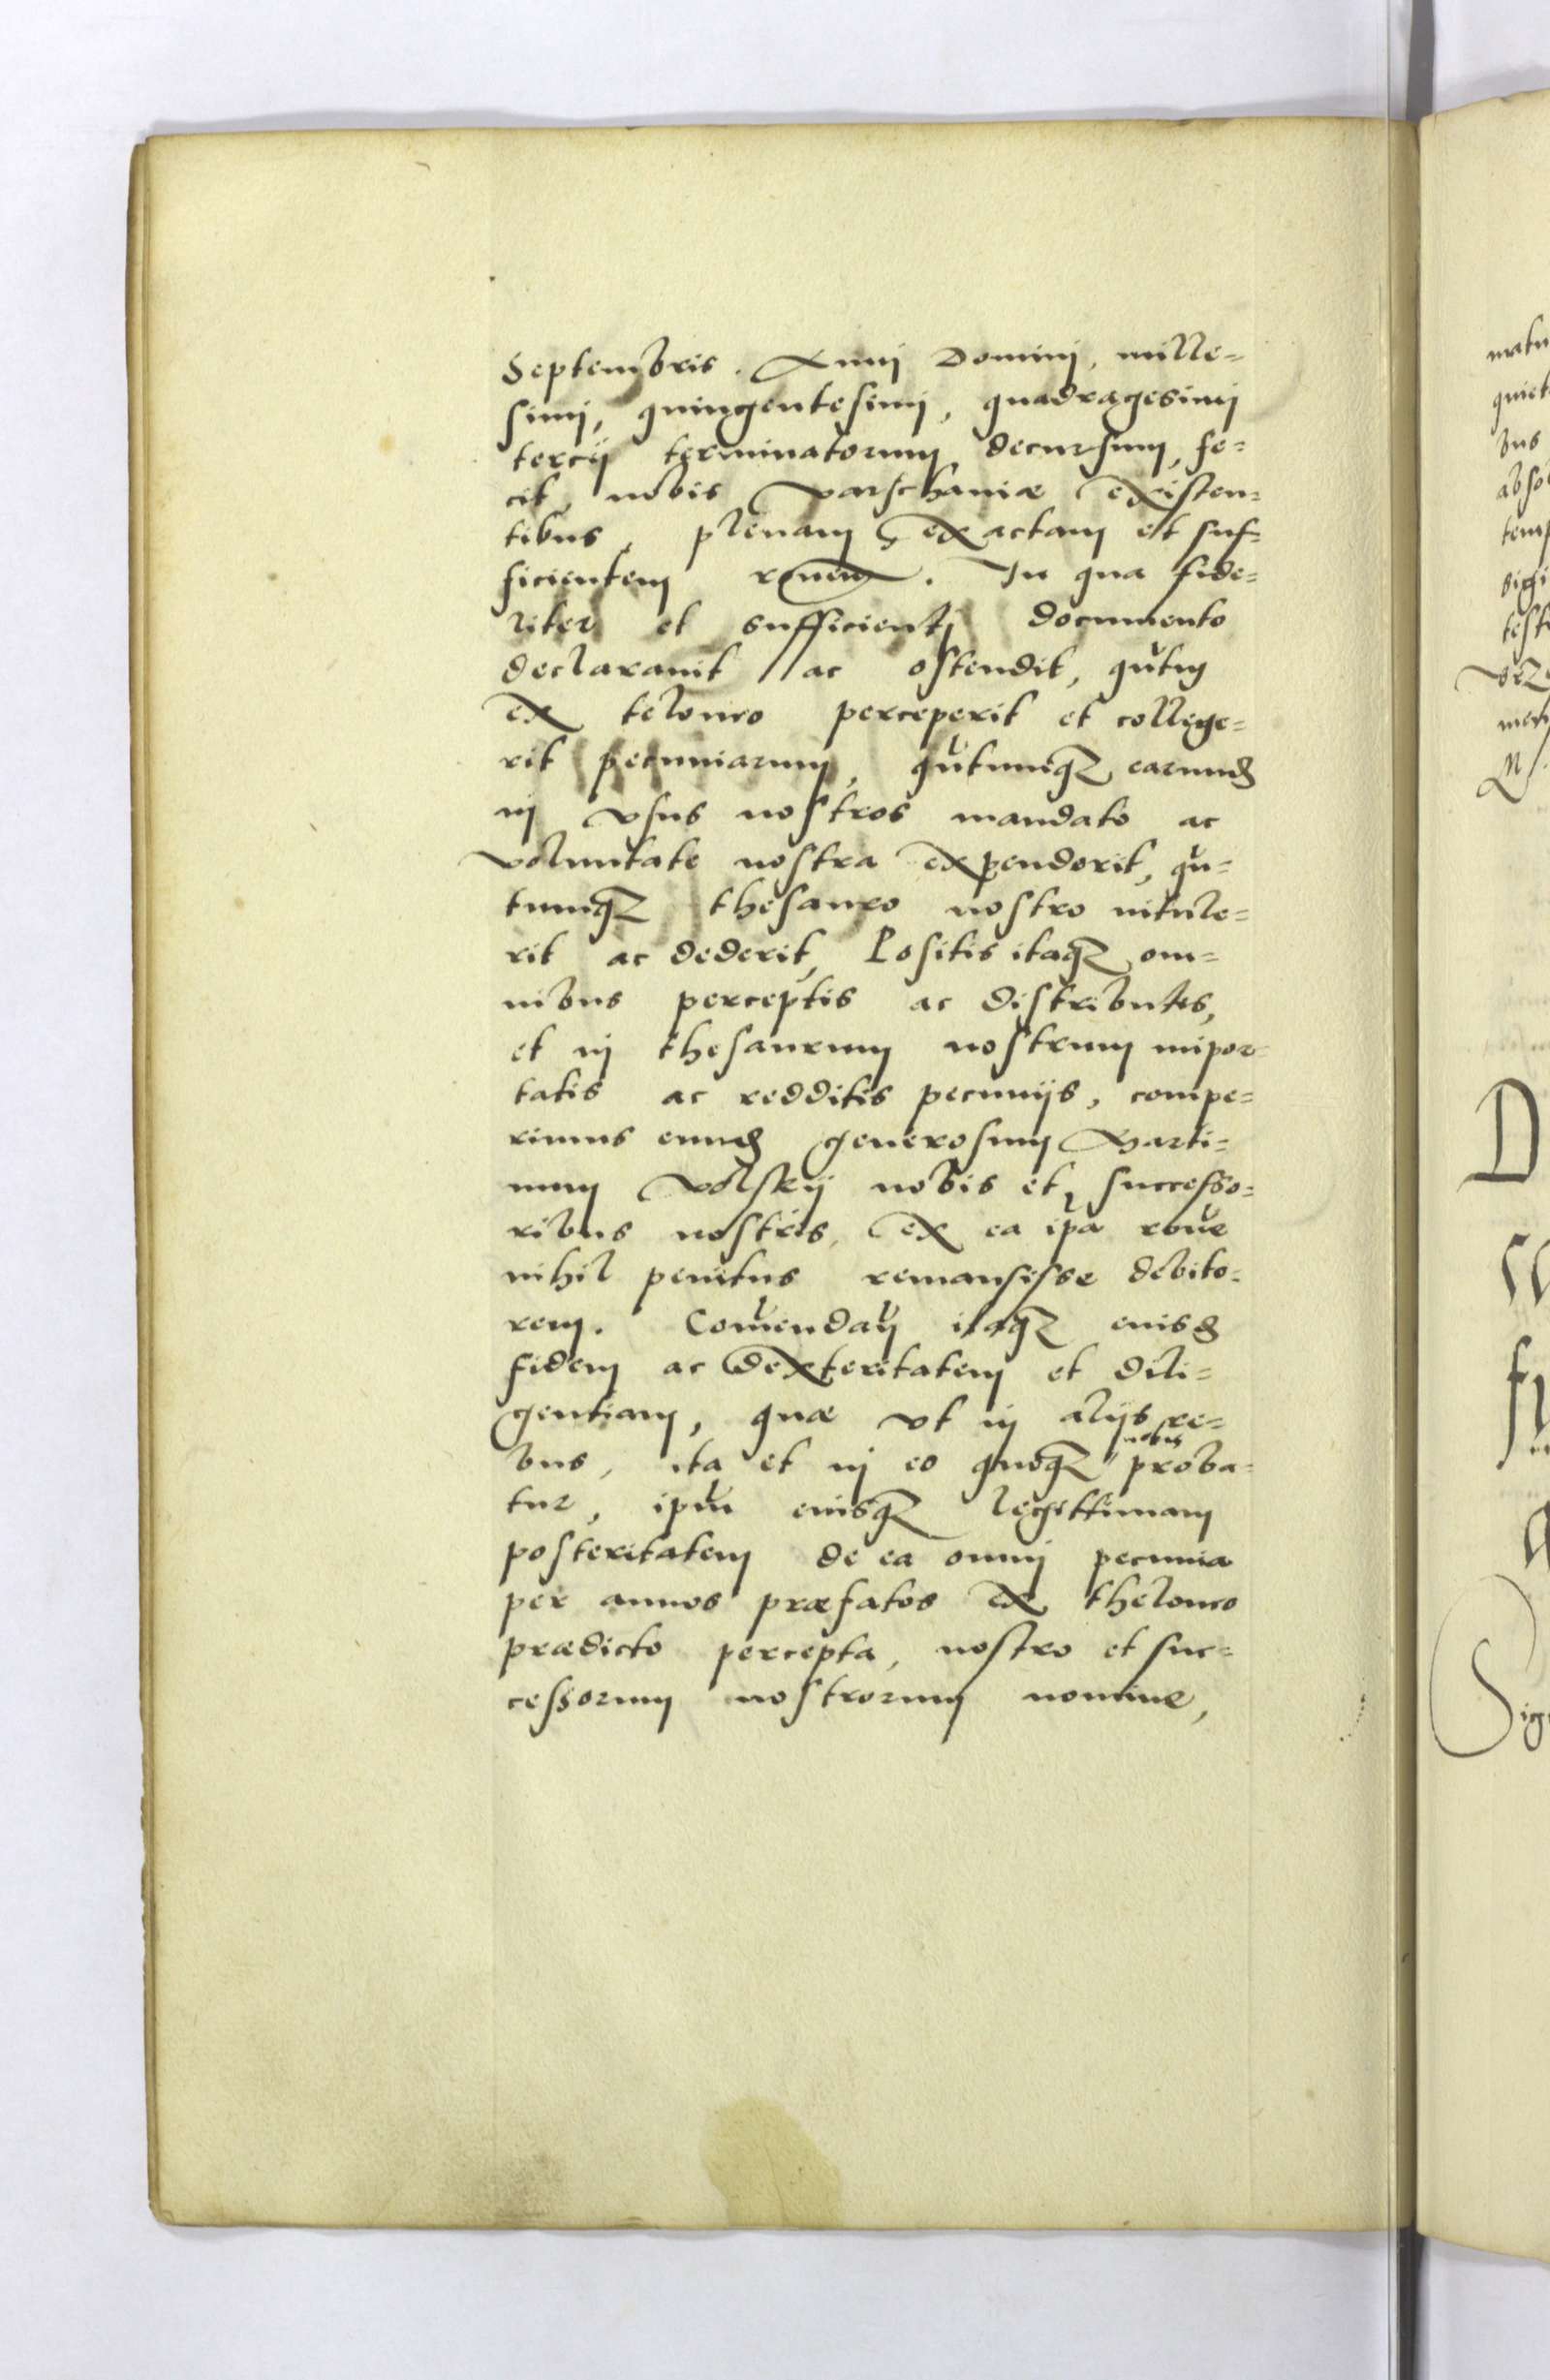 Septembris. Annj Domini, mille=
simj, quingentesimj, quadragesimj
tercij terminatorum decursum, fe=
cit nobis Varschaniæ existen=
tibus, plenam exactam et suf=
ficientem ronem. In qua fide=
liter et sufficientj documento
declarauit ac ostendit, qũtm
ex teloneo perceperit et college=
rit pecuniarum, qũtumqꝫ earund
in vsus nostros mandato ac
voluntate nostra expenderit, qũ=
tumqꝫ thesauro nostro intule=
rit ac dederit, Positis itaqꝫ om=
nibus perceptis ac distributis,
et in thesaurum nostrum impor=
tatis ac redditis pecunijs, compe=
rimus eund generosum Marti=
num Volskij nobis et successo=
ribus nostris, ex ea ipa rone
nihil penitus remansisse debito=
rem. Comendan itaqꝫ euisd
fidem ac dexteritatem et dili=
gentiam, quæ vt in alijs re=
bus, ita et in eo quoqꝫ nobis proba=
tur, ipm eiusqꝫ legittimam
posteritatem de ea omnj pecunia
per annos præfatos ex theloneo
prædicto percepta, nostro et suc=
cessorum nostrorum nomine,